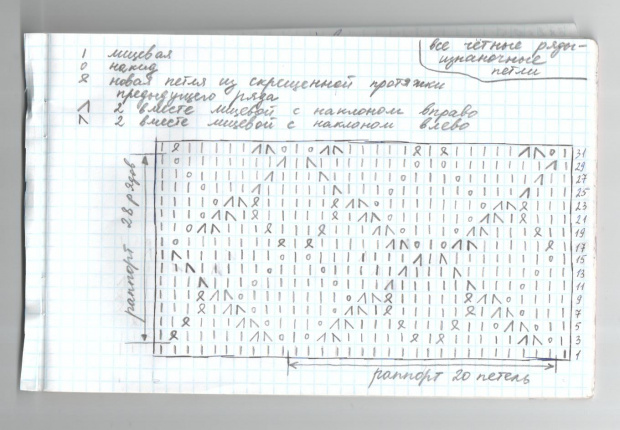 все чётные ряды-
изнаночные
петли
I лицевая
o накид
новая петля из скрещенной протяжки
предыдущего ряда
2 вместе лицевой с наклоном вправо
2 вместе лицевой с наклоном влево
раппорт 28 рядов
31
29
27
25
23
21
19
17
15
13
11
9
7
5
3
1
раппорт 20 петель